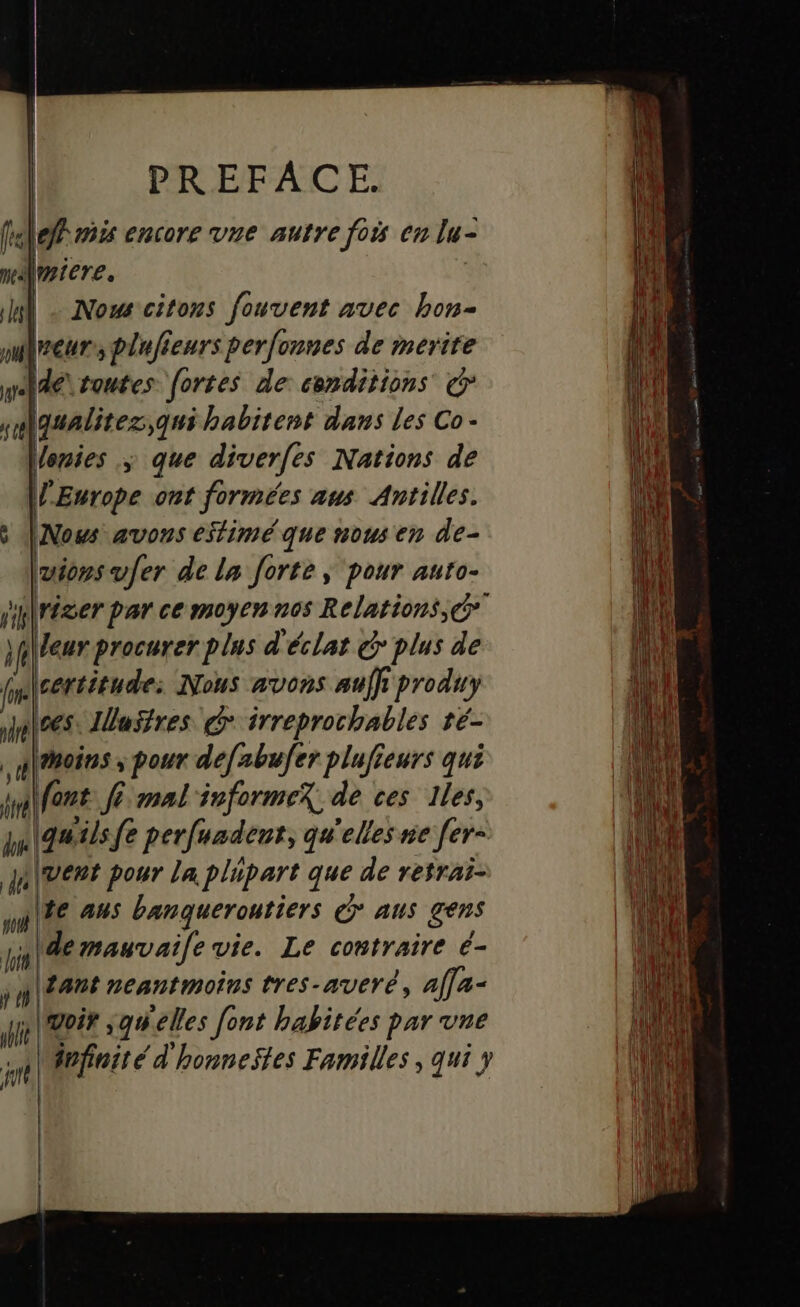 PREFACE.
est mis encore vne autre fois en lu-
miere.
Nous citons souvent avec hon-
neur, plusieurs personnes de merite
de toutes sortes de conditions &
qualitez, qui habitent dans les Co-
lonies, que diverses Nations de
l'Europe ont formées aus Antilles.
Nous avons estimé que nous en de-
vions vser de la sorte, pour auto-
rizer par ce moyen nos Relations, &
leur procurer plus d'éclat & plus de
certitude. Nous avons aussi produy
ces Illustres & irreprochables té-
moins, pour desabuser plusieurs qui
sont si mal informez de ces Iles,
qu'ils se persuadent, qu'elles ne ser-
vent pour la plûpart que de retrai-
te aus banqueroutiers & aus gens
de mauvaise vie. Le contraire é-
tant neantmoins tres-averé, assa-
voir, qu'elles sont habitées par vne
infinité d'honnestes Familles, qui y